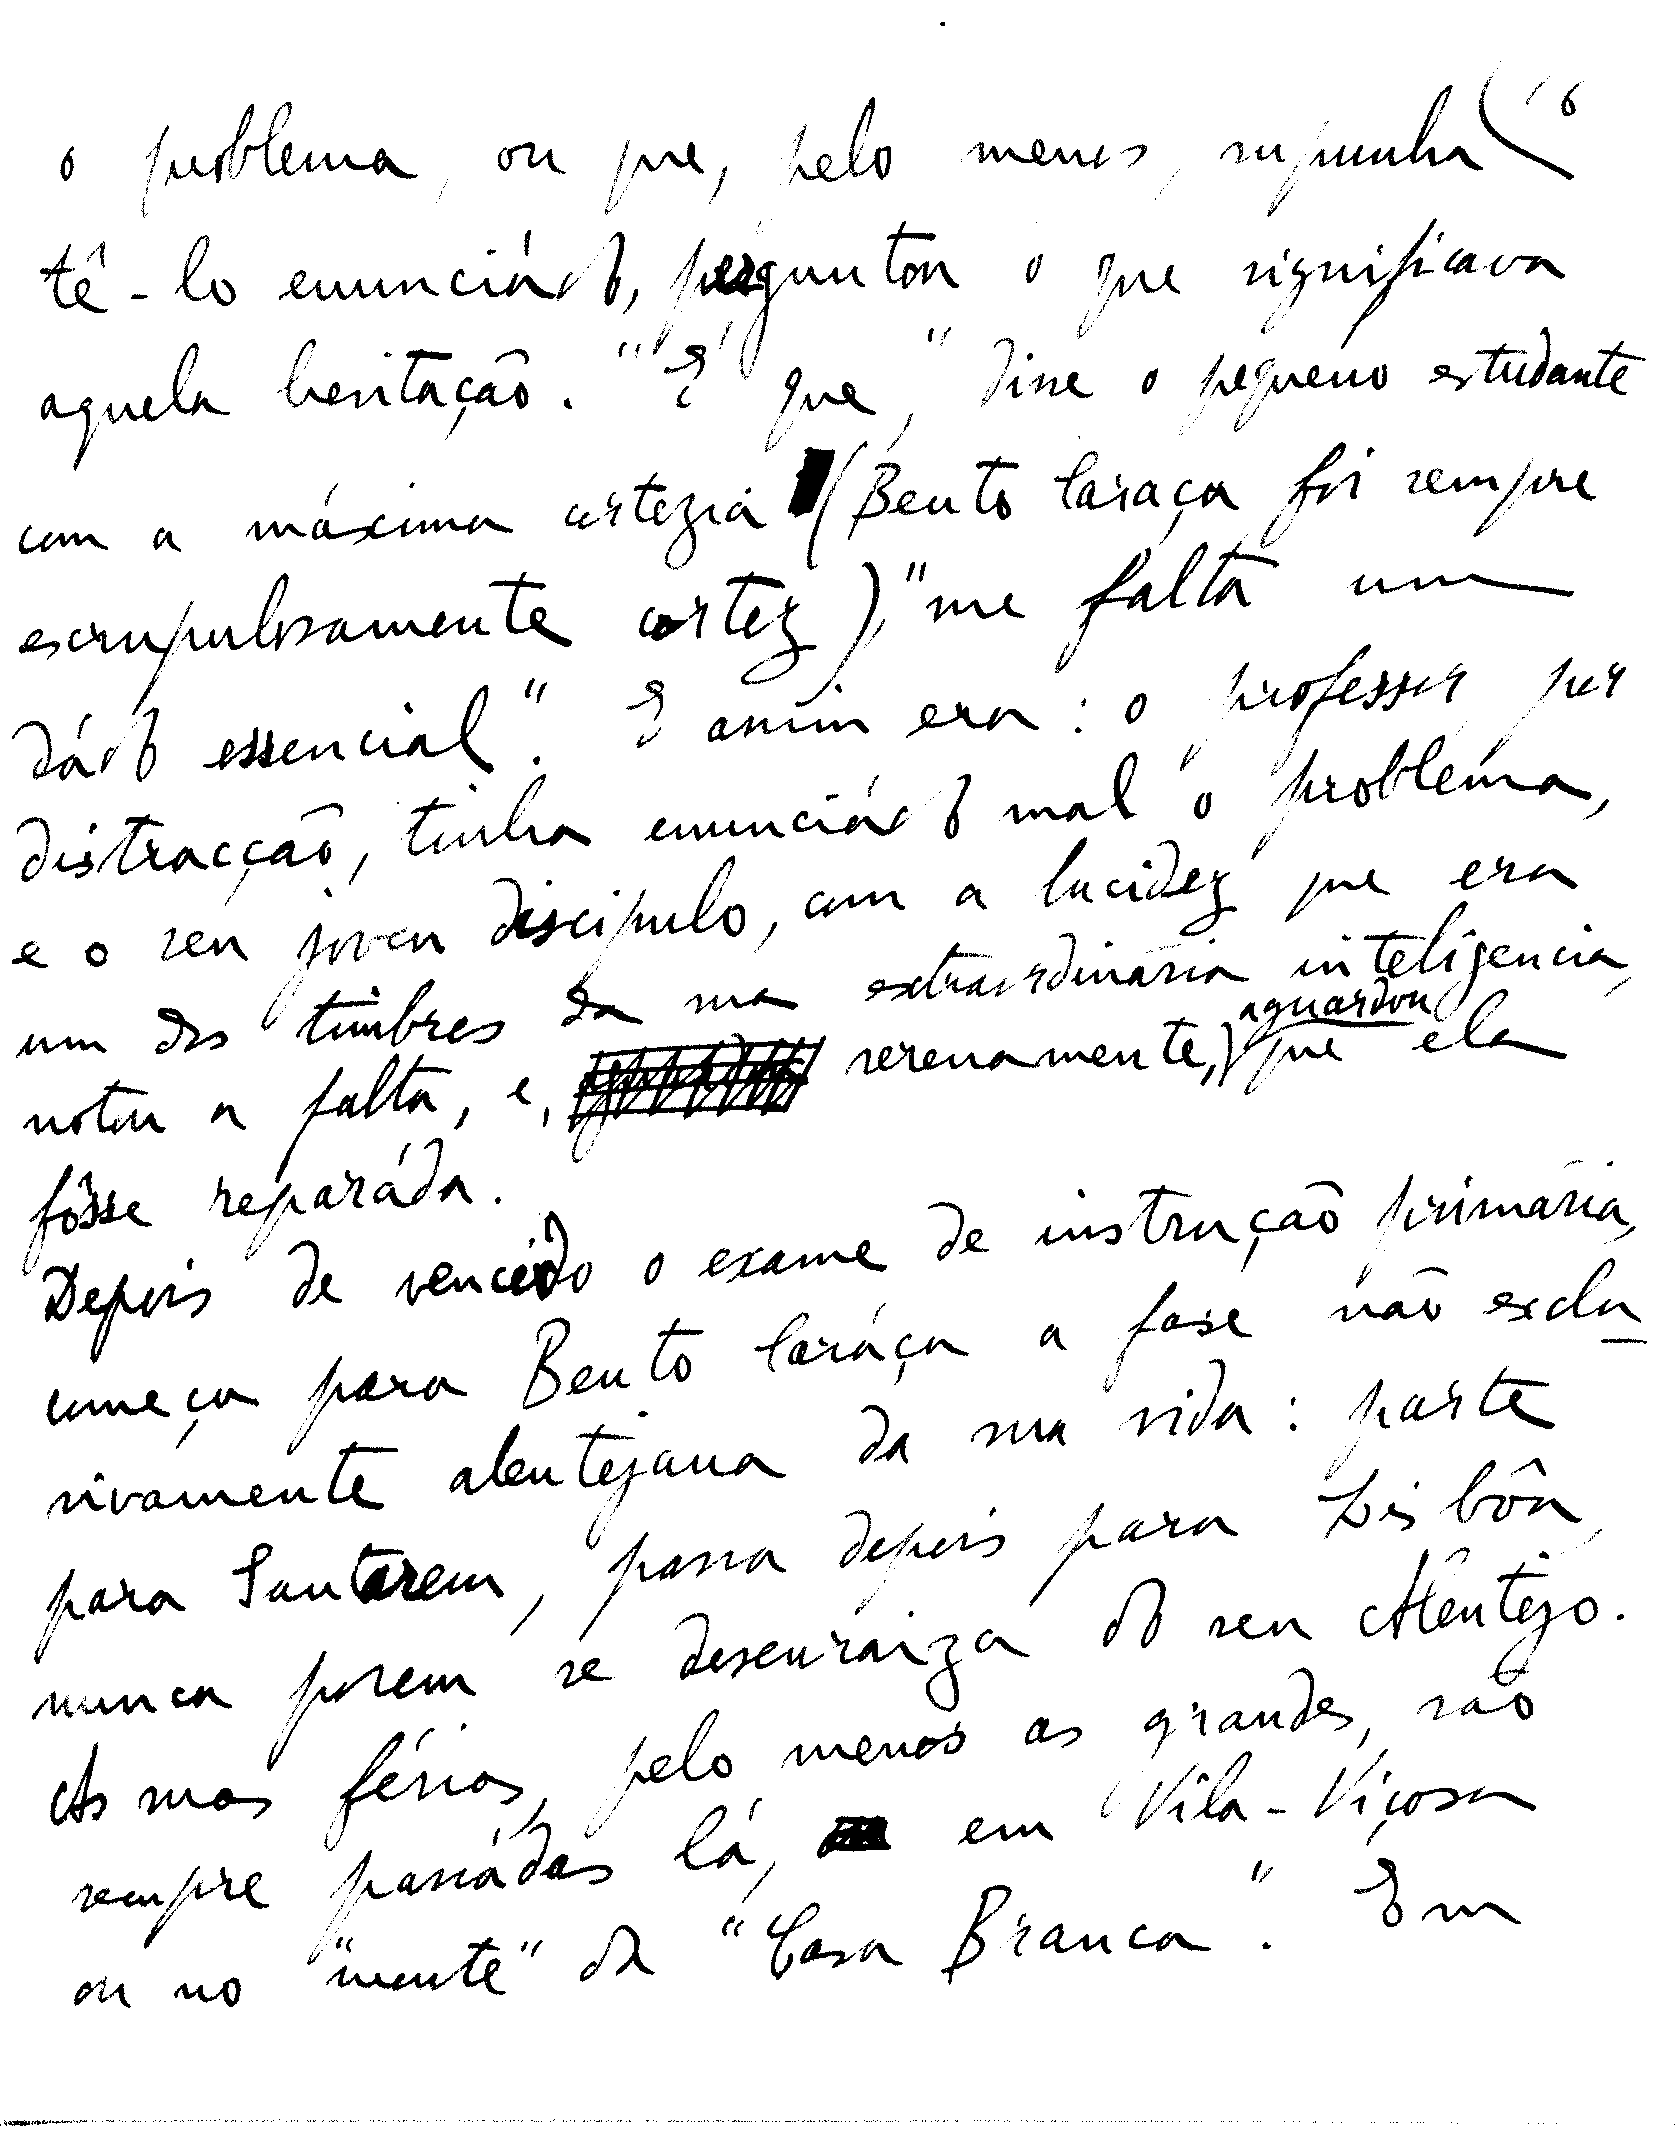 6
o problema, ou que, pelo menos, supunha
tê-lo enunciádo, perguntou o que significava
aquela hesitação. "É que", disse o pequeno estudante
com a máxima cortezia (Bento Caraça foi sempre
escrupulosamente cortez), "me falta um
dádo essencial". E assim era: o professor por
distracção, tinha enunciádo mal o problema,
e o seu jóven discipulo, com a lucidez que era
um dos timbres da sua extraordinária inteligencia,
notou a falta, e, serenamente, aguardou que ela
fôsse reparáda.
Depois de vencido o exame de instrução primária,
começa para Bento Caráça a fase não exclu
sivamente alentejana da sua vida: parte
para Santarem, passa depois para Lisbôa,
nunca porem se desenraiza do seu Alêntejo.
As suas férias, pelo menos as grandes, são
sempre passádas lá, em Vila-Viçosa
ou no "monte" da "Casa Branca". Em